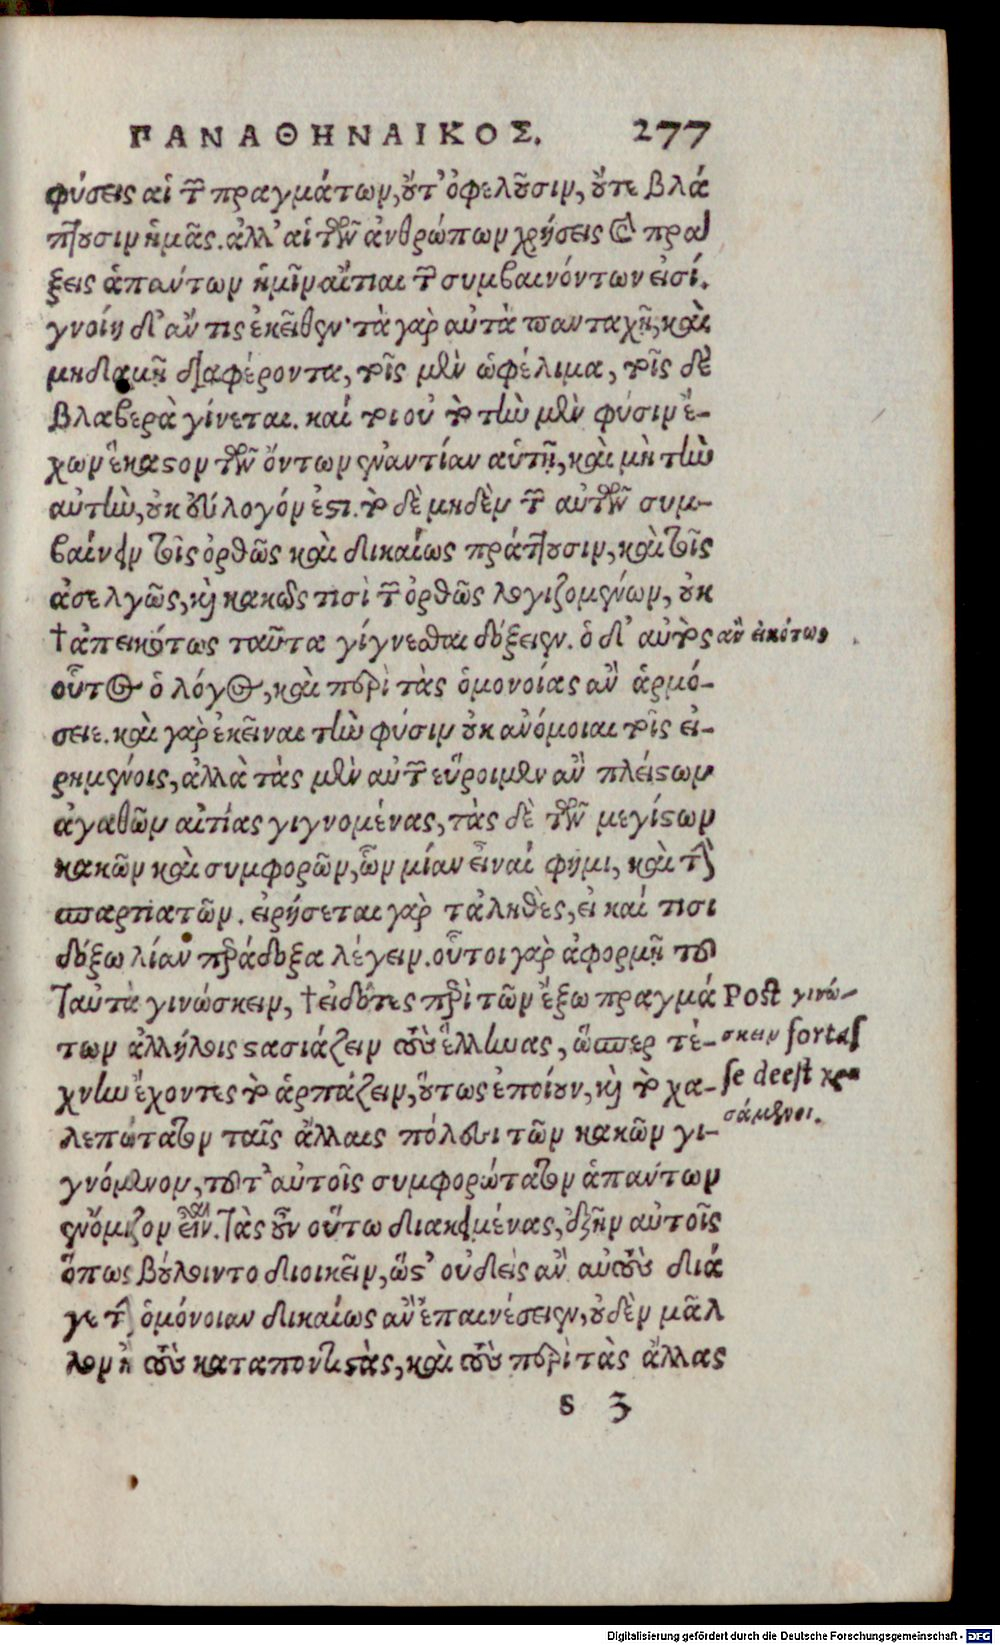 ΠΑΝΑΘΗΝΑΙΚΟΣ. 277
φύσεις αἱ τῶν πραγμάτων, οὔτ' ὀφελοῦσιν, οὔτε βλά
πτουσιν ἡμᾶς. ἀλλ' αἱ τῶν ἀνθρώπων χρήσεις καὶ πρα
ξεις ἁπάντων ἡμῖν αἴτιαι τῶν συμβαινόντων εἰσί.
γνοίη δ' ἄν τις ἐκεῖθεν· τὰ γὰρ αὐτὰ πανταχῆ, καὶ
μηδαμῆ διαφέροντα, τοῖς μὲν ὠφέλιμα, τοῖς δὲ
βλαβερὰ γίνεται. καί τοι οὐ τὸ τὴν μὲν φύσιν ἔ-
χων ἕκαστον τῶν ὄντων ἐναντίαν αὑτῆ, καὶ μὴ τὴν
αὐτὴν, οὐκ εὔλογόν ἐστι. τὸ δὲ μηδὲν τῶν αὐτῶν συμ-
βαίνειν τοῖς ὀρθῶς καὶ δικαίως πράττουσιν, καὶ τοῖς
ἀσελγῶς, καὶ κακῶς τισὶ τῶν ὀρθῶς λογιζομένων, οὐκ
†ἀπεικότως ταῦτα γίγνεσθαι δόξειεν. ὁ δ' αὐτὸς ἂν εἰκότως
οὗτος ὁ λόγος, καὶ περὶ τὰς ὁμονοίας ἂν ἁρμό-
σειε. καὶ γὰρ ἐκεῖναι τὴν φύσιν οὐκ ἀνόμοιαι τοῖς εἰ-
ρημένοις, ἀλλὰ τὰς μὲν αὐτῶν εὕροιμεν ἂν πλείστων
ἀγαθῶν αἰτίας γιγνομένας, τὰς δὲ τῶν μεγίστων
κακῶν καὶ συμφορῶν, ὧν μίαν εἶναί φημι, καὶ τὴν
σπαρτιατῶν. εἰρήσεται γὰρ τἀληθὲς, εἰ καί τισι
δόξω λίαν παράδοξα λέγειν. οὗτοι γὰρ ἀφορμῆ τοῦ
ταὐτὰ γινώσκειν, †εἰδότες περὶ τῶν ἔξω πραγμά Post γινώ-
των ἀλλήλοις στασιάζειν τοὺς ἕλληνας, ὥσπερ τέ- σκειν fortas
χνην ἔχοντες τὸ ἁρπάζειν, οὕτως ἐποίουν, καὶ τὸ χα- se deest χρη
λεπώτατον ταῖς ἄλλαις πόλεσι τῶν κακῶν γι- σάμενοι.
γνόμενον, τοῦτ' αὐτοῖς συμφορώτατον ἁπάντων
ἐνόμιζον εἶναι. τὰς οὖν οὕτω διακειμένας, ἐξῆν αὐτοῖς
ὅπως βούλοιντο διοικεῖν, ὥστ' οὐδεὶς ἂν αὐτοὺς διά
γε τὴν ὁμόνοιαν δικαίως ἂν ἐπαινέσειεν, οὐδὲν μᾶλ
λον ἢ τοὺς καταποντιστὰς, καὶ τοὺς περὶ τὰς ἄλλας
s 3
Digitalisierung gefördert durch die Deutsche Forschungsgemeinschaft - DFG